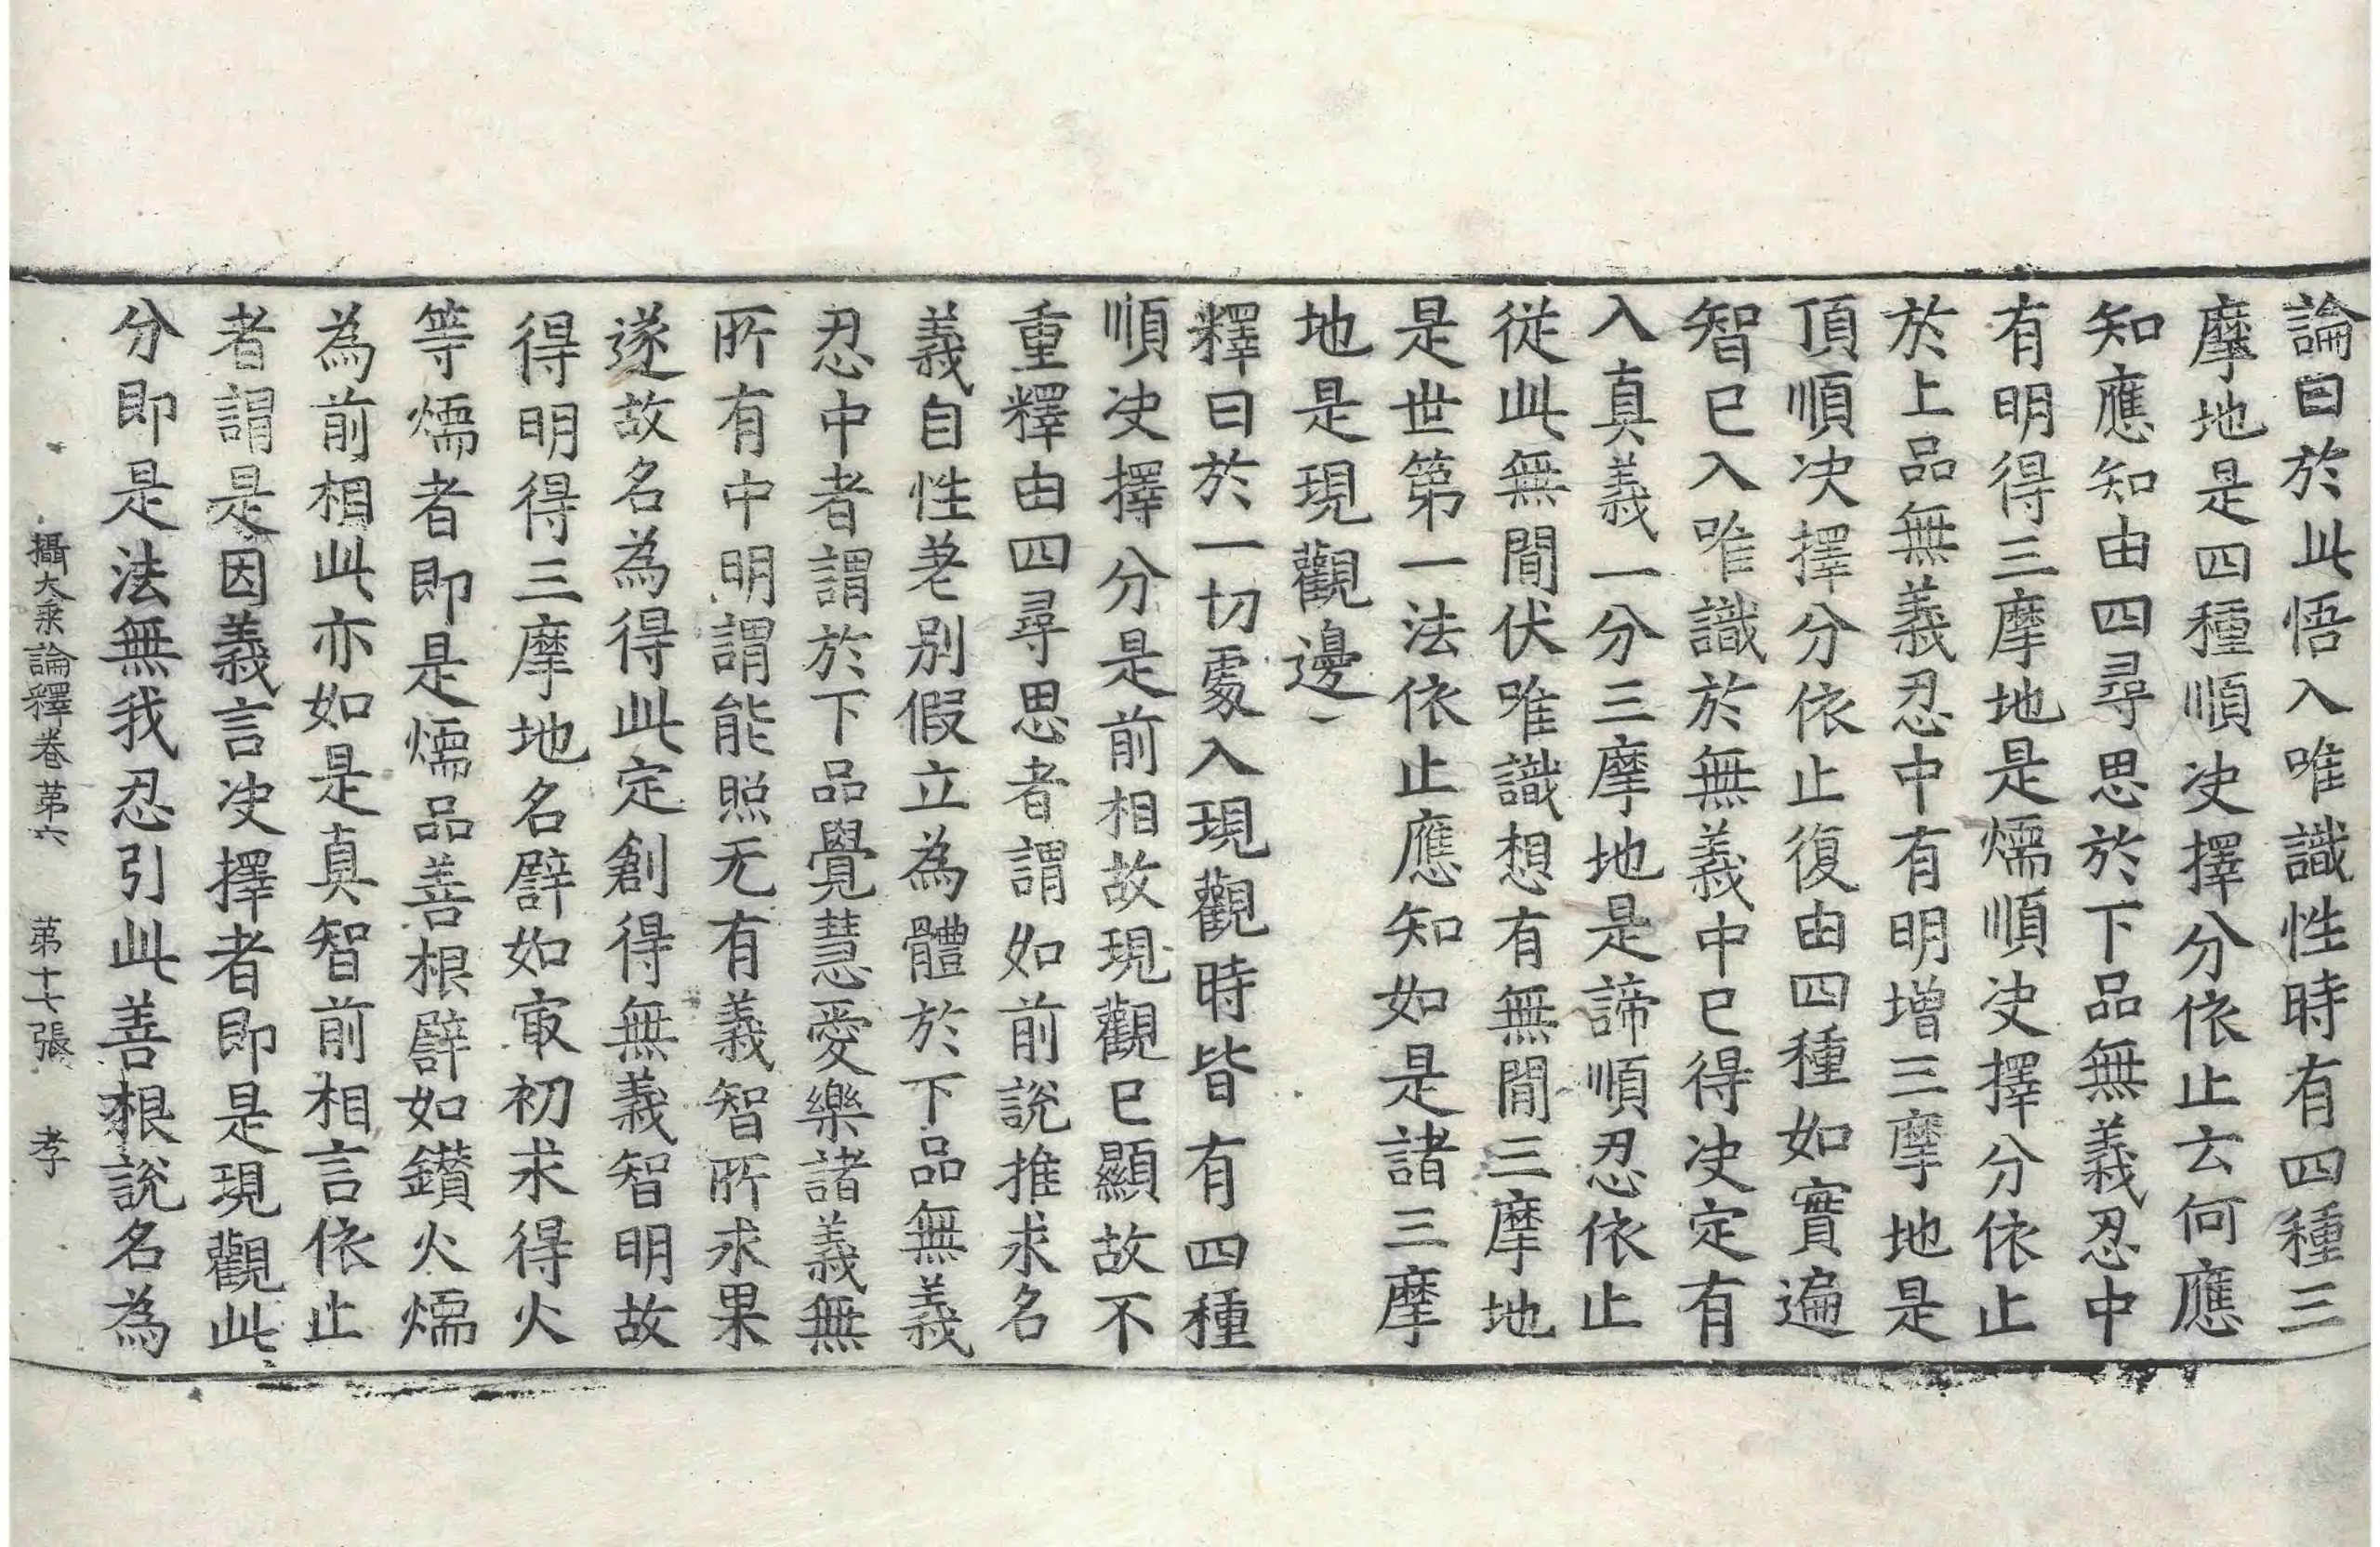 論曰於此悟入唯識性時有四種三
摩地是四種順决擇分依止云何應
知應知由四尋思於下品無義忍中
有明得三摩地是煗順决擇分依止
於上品無義忍中有明增三摩地是
頂順决擇分依止復由四種如實遍
智已入唯識於無義中已得决定有
入真義一分三摩地是諦順忍依止
從此無間伏唯識想有無間三摩地
是世第一法依止應知如是諸三摩
地是現觀邊
釋曰於一切處入現觀時皆有四種
順决擇分是前相故現觀已顯故不
重釋由四尋思者謂如前說推求名
義自性差別假立為體於下品無義
忍中者謂於下品覺慧愛樂諸義無
所有中明謂能照无有義智所求果
遂故名為得此定創得無義智明故
得明得三摩地名譬如冣初求得火
等煗者即是煗品善根譬如鑚火煗
為前相此亦如是真智前相言依止
者謂是因義言决擇者即是現觀此
分即是法無我忍引此善根說名為
攝大乘論釋卷第六 第十七張 孝